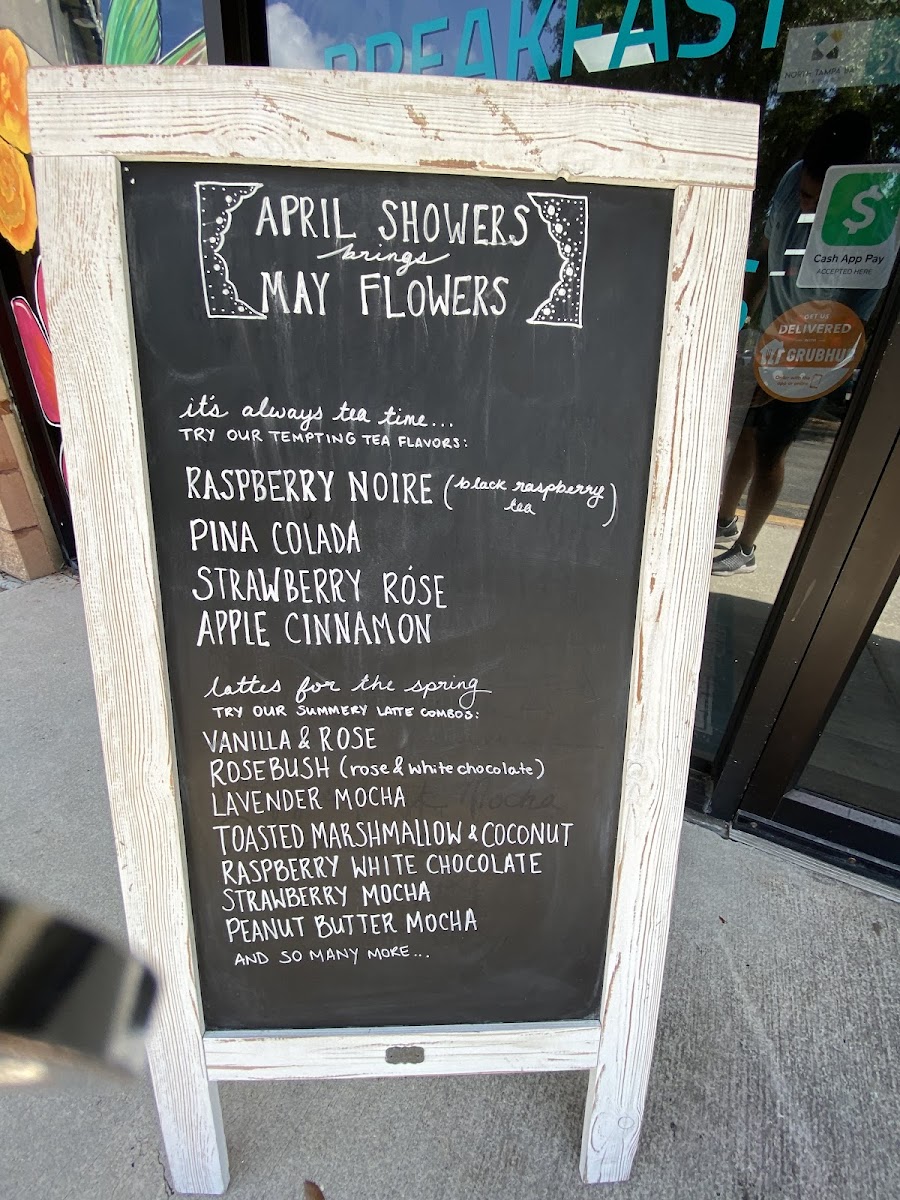 BREAKFAST
NORTH TAMPA BAY
APRIL SHOWERS
brings
MAY FLOWERS
Cash App Pay
ACCEPTED HERE
GET US
DELIVERED
WITH
GRUBHUB
it's always tea time...
TRY OUR TEMPTING TEA FLAVORS:
RASPBERRY NOIRE (black raspberry
tea)
PINA COLADA
STRAWBERRY RÓSE
APPLE CINNAMON
lattes for the spring
TRY OUR SUMMERY LATTE COMBOS:
VANILLA & ROSE
ROSEBUSH (rose & white chocolate)
LAVENDER MOCHA
TOASTED MARSHMALLOW & COCONUT
RASPBERRY WHITE CHOCOLATE
STRAWBERRY MOCHA
PEANUT BUTTER MOCHA
AND SO MANY MORE...